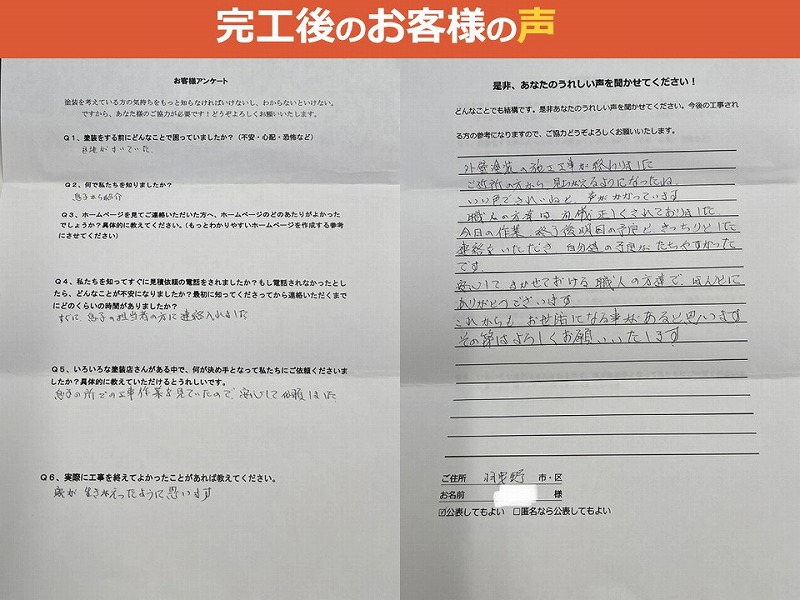 完工後のお客様の声
お客様アンケート
塗装を考えている方の気持ちをもっと知らなければいけないし、わからないといけない。
ですから、あなた様のご協力が必要です!どうぞよろしくお願いいたします。
Q1、塗装をする前にどんなことで困っていましたか?(不安・心配・恐怖など)
目地がすいていた
Q2、何で私たちを知りましたか?
息子から紹介
Q3、ホームページを見てご連絡いただいた方へ、ホームページのどのあたりがよかった
でしょうか?具体的に教えてください。(もっとわかりやすいホームページを作成する参考
にさせてください)
Q4、私たちを知ってすぐに見積依頼の電話をされましたか?もし電話されなかったとし
たら、どんなことが不安になりましたか?最初に知ってくださってから連絡いただくまで
にどのくらいの時間がありましたか?
すぐに、息子の担当者の方に連絡入れました
Q5、いろいろな塗装店さんがある中で、何が決め手となって私たちにご依頼くださいま
したか?具体的に教えていただけるとうれしいです。
息子の所での工事作業を見ていたので、安心して依頼しました
Q6、実際に工事を終えてよかったことがあれば教えてください。
家が生きかえったように思います
是非、あなたのうれしい声を聞かせてください!
どんなことでも結構です。是非あなたのうれしい声を聞かせてください。今後の工事され
る方の参考になりますので、ご協力どうぞよろしくお願いいたします。
外壁塗装の施工工事が終わりました
ご近所の方から見ちがえるようになったね
いい色できれいねと 声がかかっています
職人の方達は礼儀正しくされておりました
今日の作業、終了後明日の予定と、きっちりとした
連絡をいただき 自分達の予定がたちやすかった
です
安心してまかせておける職人の方達で、ほんとに
ありがとうございます
これからも お世話になる事があると思います
その節はよろしくお願いいたします
ご住所 羽曳野 市・区
お名前 様
☑公表してもよい □匿名なら公表してもよい